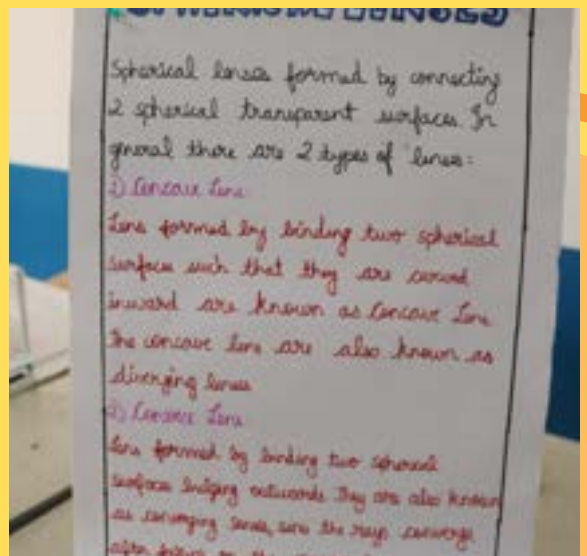 SPHERICAL LENSES
Spherical lenses formed by connecting
2 spherical transparent surfaces. In
general there are 2 types of lenses:
1) Concave Lens
Lens formed by binding two spherical
surfaces such that they are curved
inward are known as Concave Lens
The concave lens are also known as
diverging lenses
2) Convex Lens
Lens formed by binding two spherical
surfaces bulging outwards They are also known
as converging lenses, since the rays converge
after